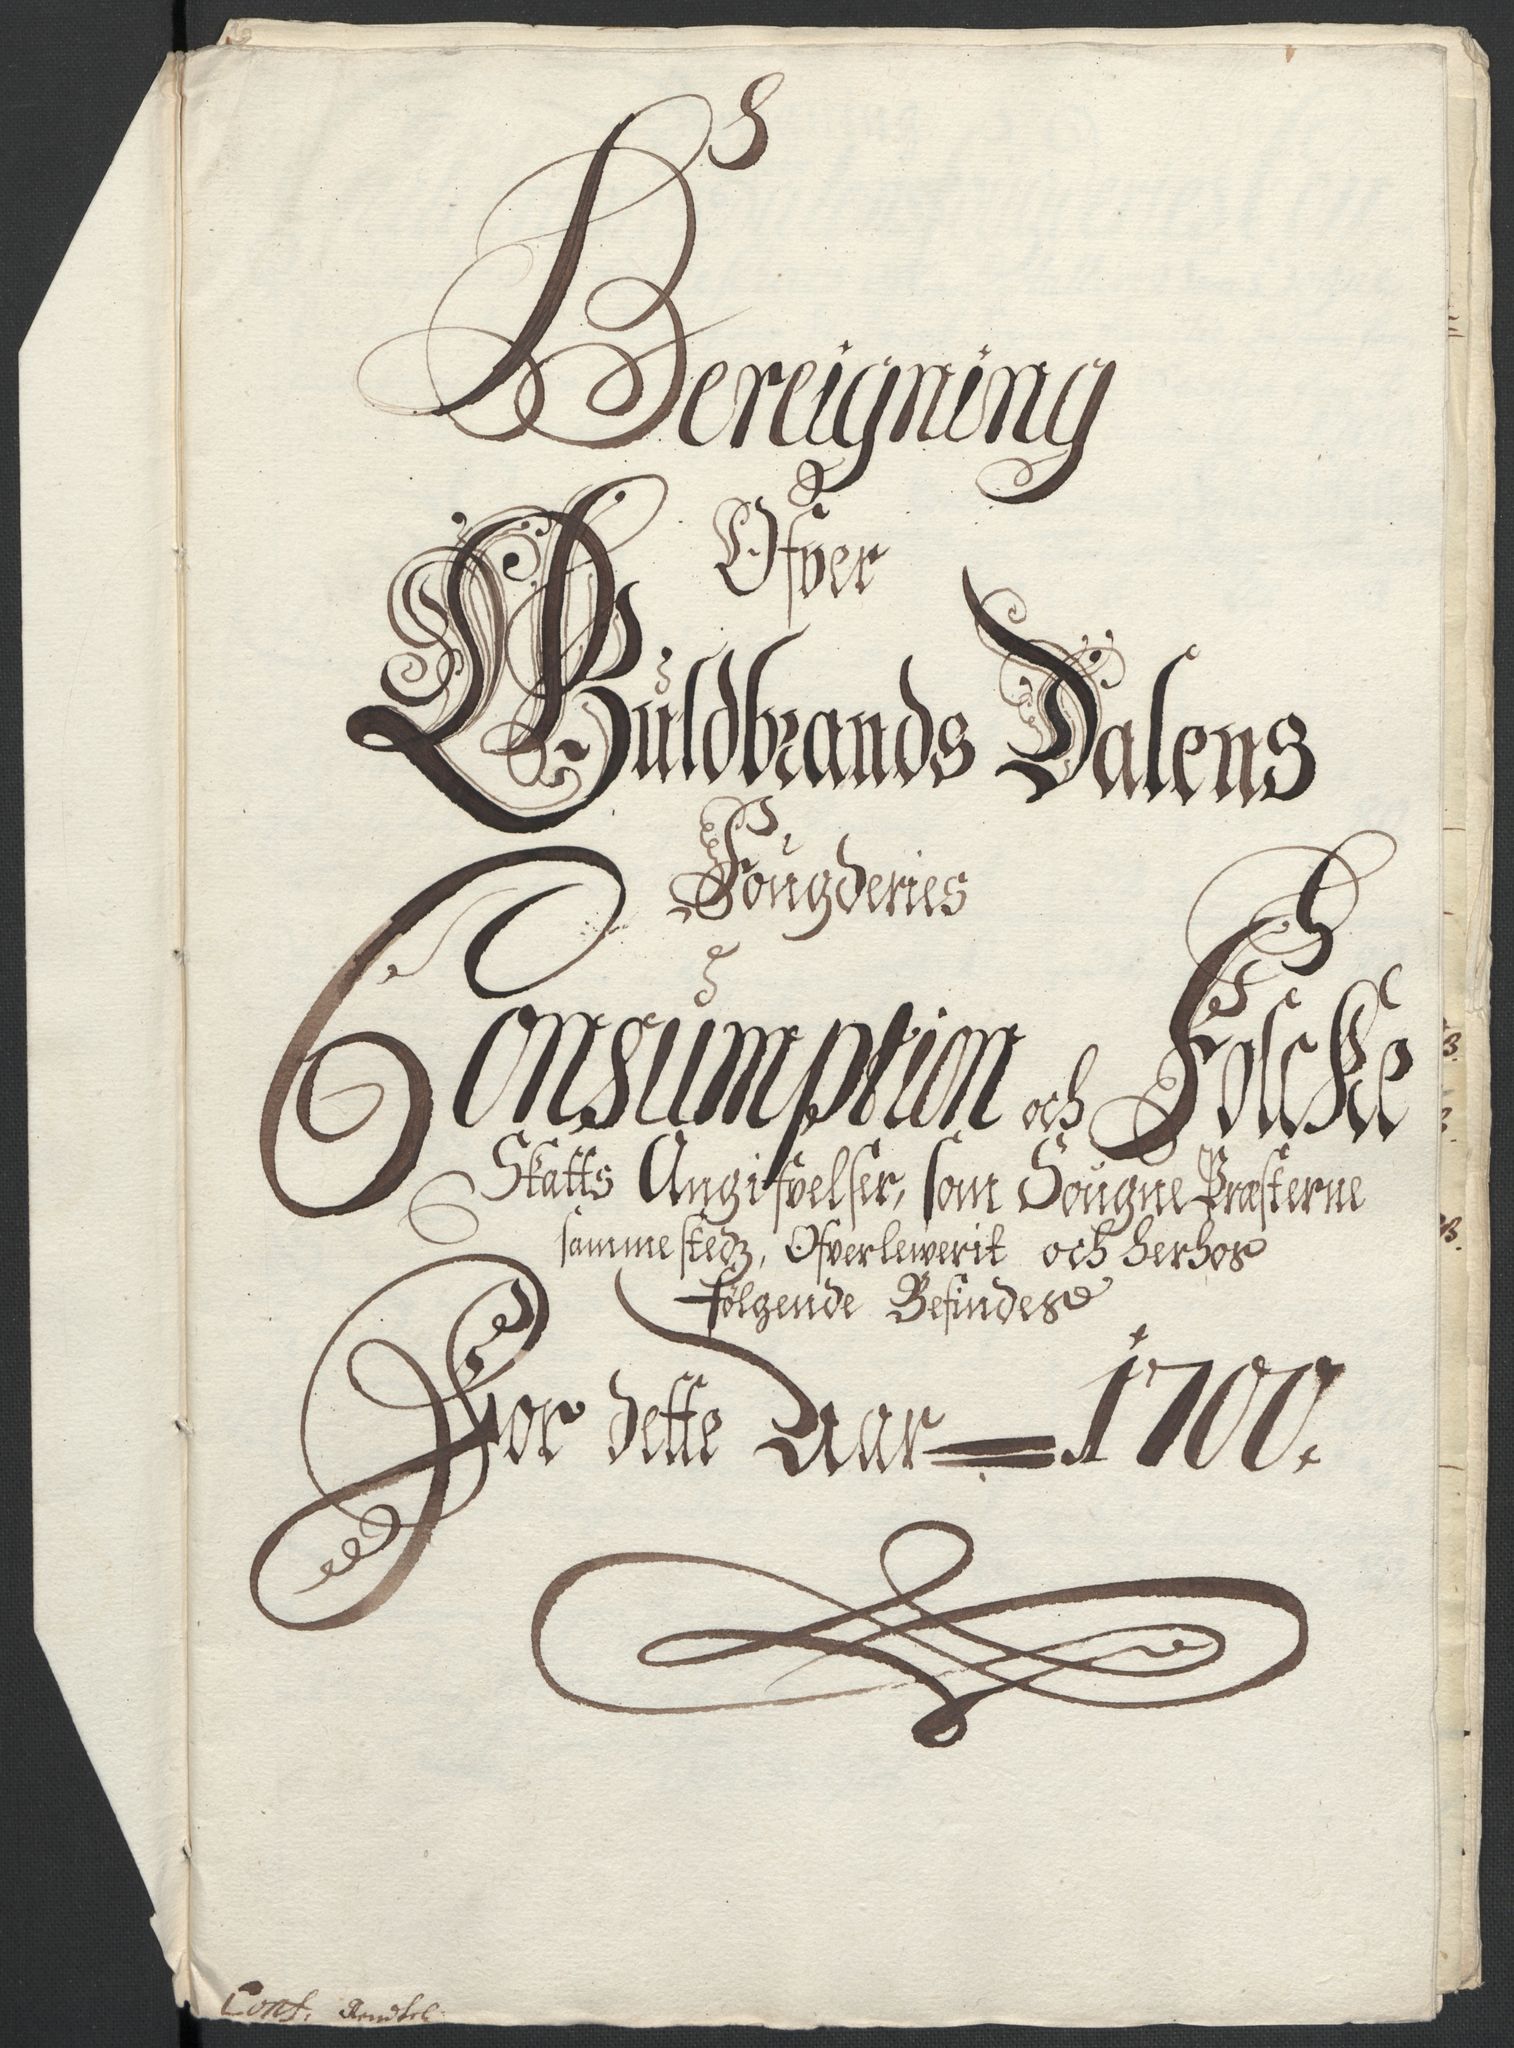 Bereigning
Ofver
Guldbrands Dalens
Fougderies
Consumption och Folcke
Skatts Angifvelser, som SougnePræsterne
sammestedz, Ofverlewerit och herhos
følgende Befindes
For dette Aar 1700.